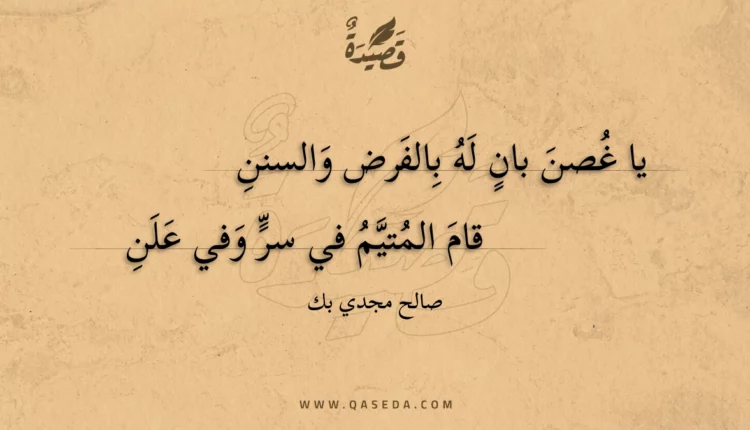 قَصِيْدَةٌ
يا غُصنَ بانٍ لَهُ بِالفَرض وَالسننِ
قامَ المُتيَّمُ في سرٍّ وَفي عَلَنِ
صالح مجدي بك
WWW.QASEDA.COM